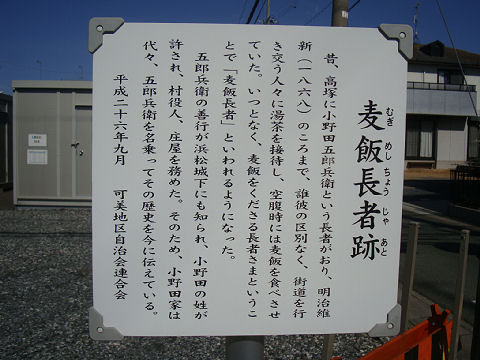 麦飯長者跡
むぎめしちょうじゃあと
昔、高塚に小野田五郎兵衛という長者がおり、明治維
新(一八六八)のころまで、誰彼の区別なく、街道を行
き交う人々に湯茶を接待し、空腹時には麦飯を食べさせ
ていた。いつとなく、麦飯をくださる長者さまというこ
とで「麦飯長者」といわれるようになった。
五郎兵衛の善行が浜松城下にも知られ、小野田の姓が
許され、村役人、庄屋を務めた。そのため、小野田家は
代々、五郎兵衛を名乗ってその歴史を今に伝えている。
平成二十六年九月 可美地区自治会連合会